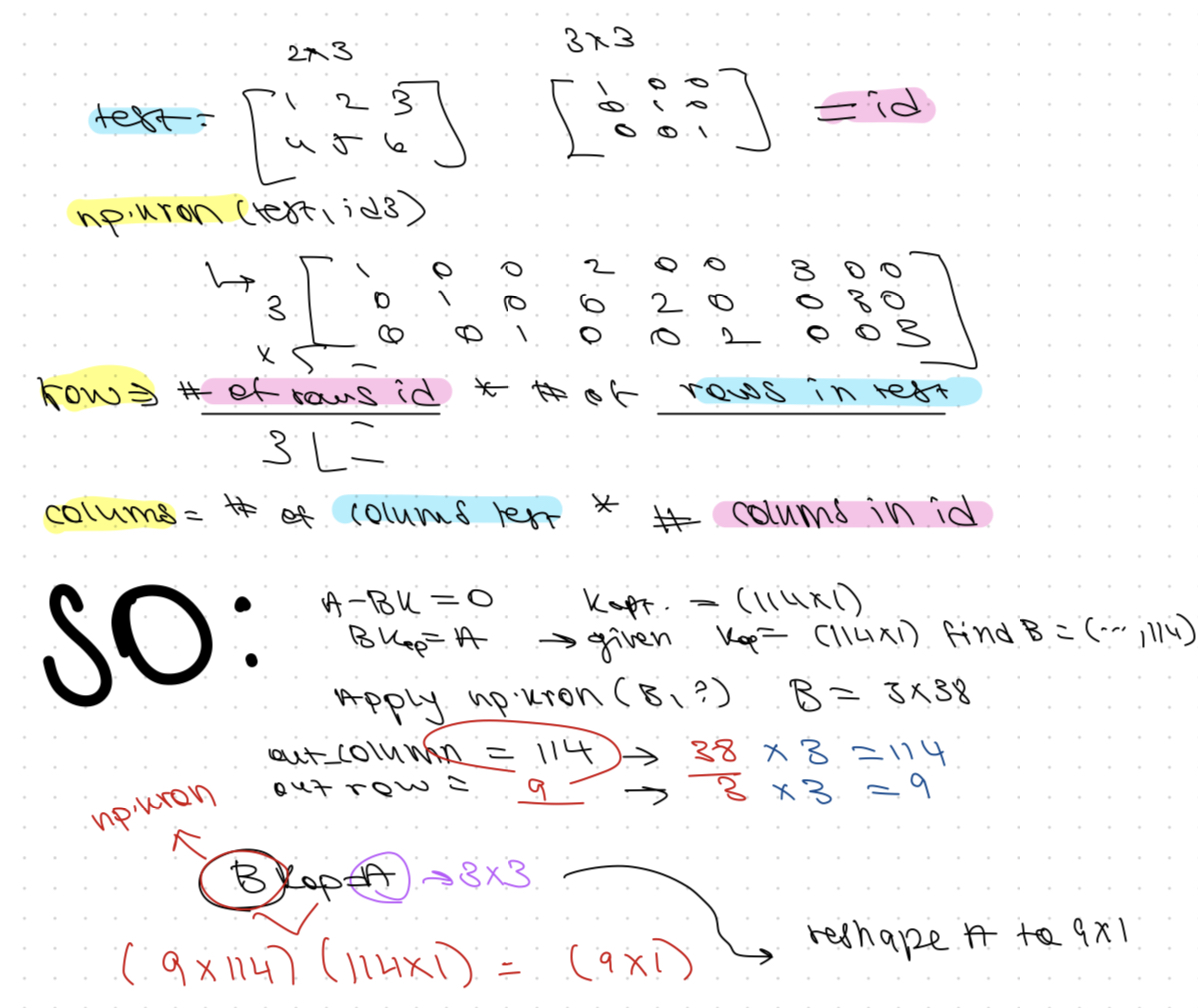 2x3 3x3
test= [1 2 3 [1 0 0 = id
4 5 6] 0 1 0
0 0 1]
np.kron (test, id3)
↳ 3 [1 0 0 2 0 0 3 0 0
0 1 0 0 2 0 0 3 0
0 0 1 0 0 2 0 0 3]
x
row => # of rows id * # of rows in test
3
colums = # of colums test * # colums in id
SO:
A-BK=0 Kopt. = (114x1)
BKop=A → given Kop= (114x1) find B = (...,114)
Apply np.kron (B, ?) B = 3x38
out_column = 114 → 38 x 3 = 114
out row = 9 → 3 x 3 = 9
np.kron
B Kop=A → 3x3
reshape A to 9x1
(9x114) (114x1) = (9x1)